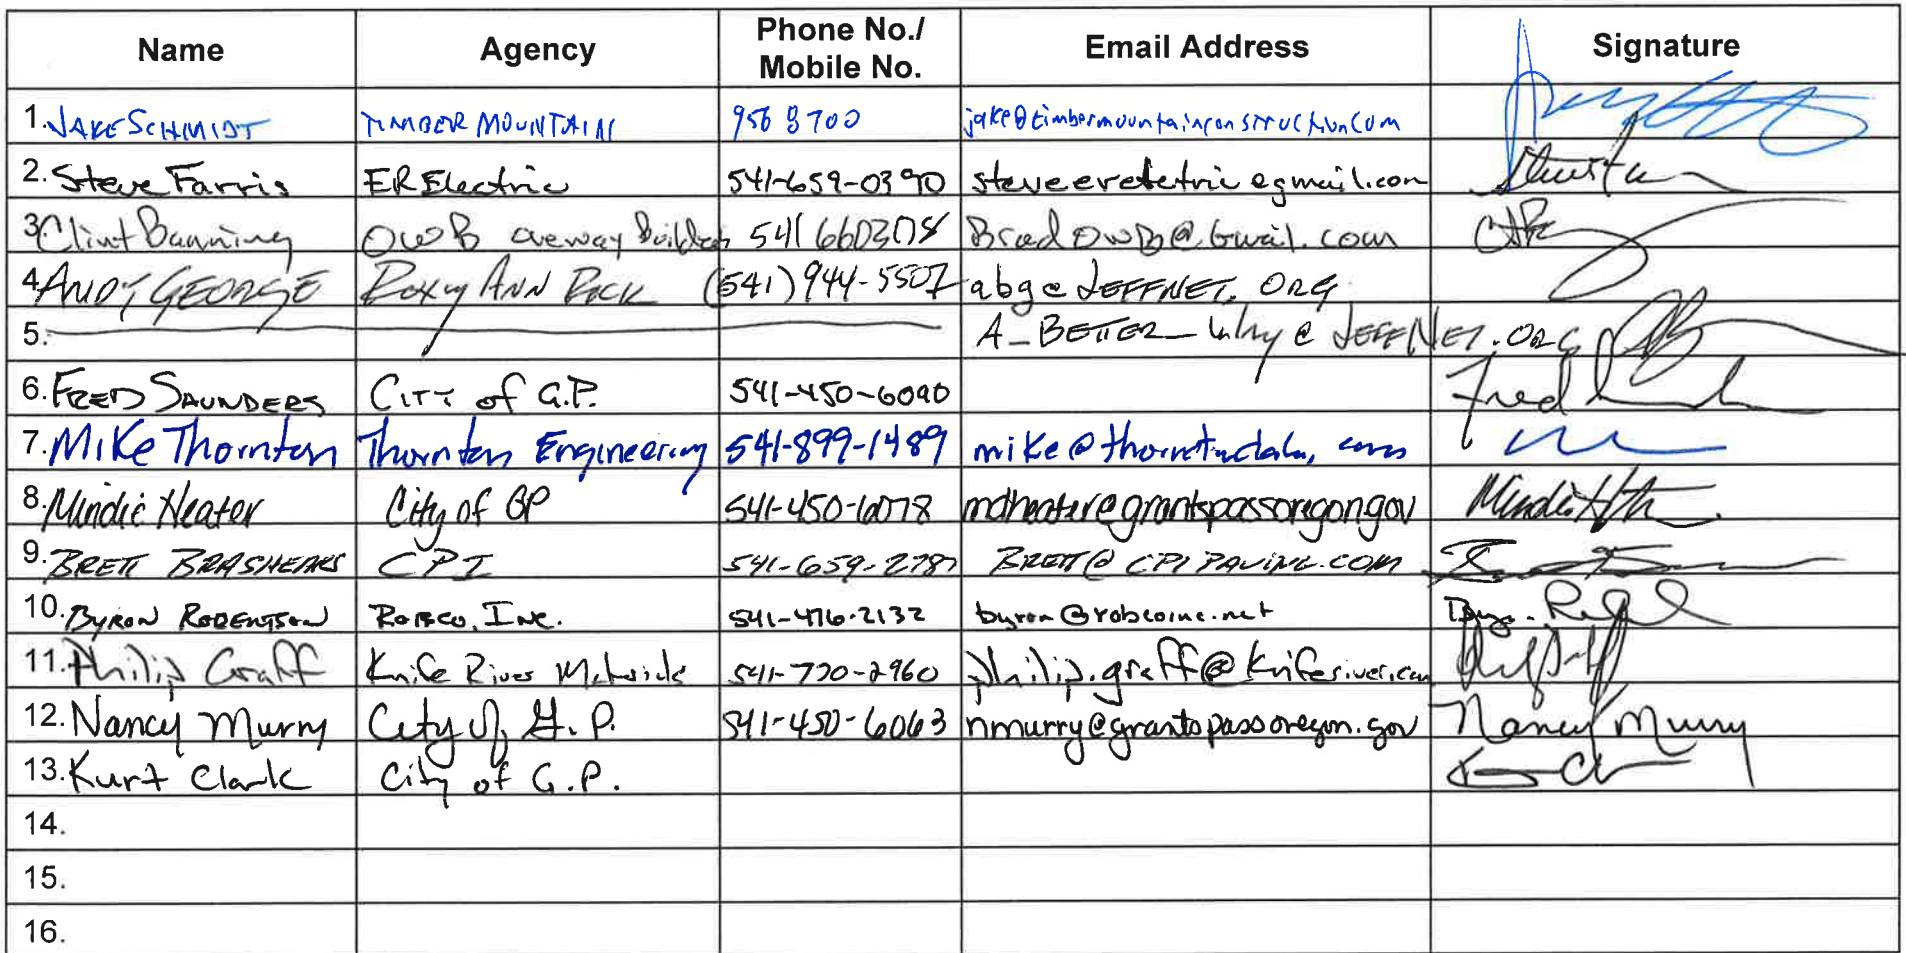 Name Agency Phone No./ Mobile No. Email Address Signature
1. JAKE SCHMIDT TIMBER MOUNTAIN 956 8700 jake@timbermountainconstruction.com
2. Steve Farris ER Electric 541-659-0390 steveerelectric@gmail.com
3. Clint Banning OWB Oneway Builders 541 6603708 BradOWB@Gmail.com
4. ANDY GEORGE Roxy ANN ROCK (541) 944-5507 abg@JEFFNET.ORG
5. A_BETTER_Why@JEFFNET.ORG
6. FRED SAUNDERS CITY of G.P. 541-450-6090 Fred
7. Mike Thornton Thornton Engineering 541-899-1489
8. Mindie Heater City of GP 541-450-6078 mdheater@grantspassoregon.gov Mindie
9. BRETT BRASHEARS CPI 541-659-2787 BRETT@CPIPAVING.COM
10. BYRON ROBERTSON ROBCO, INC. 541-476-2132 byron@robcoinc.net
11. Philip Graff Knife River Materials 541-720-2960 philip.graff@kniferiver.com
12. Nancy Murry City of G.P. 541-450-6063 nmurry@grantspassoregon.gov Nancy Murry
13. Kurt Clark City of G.P.
14.
15.
16.